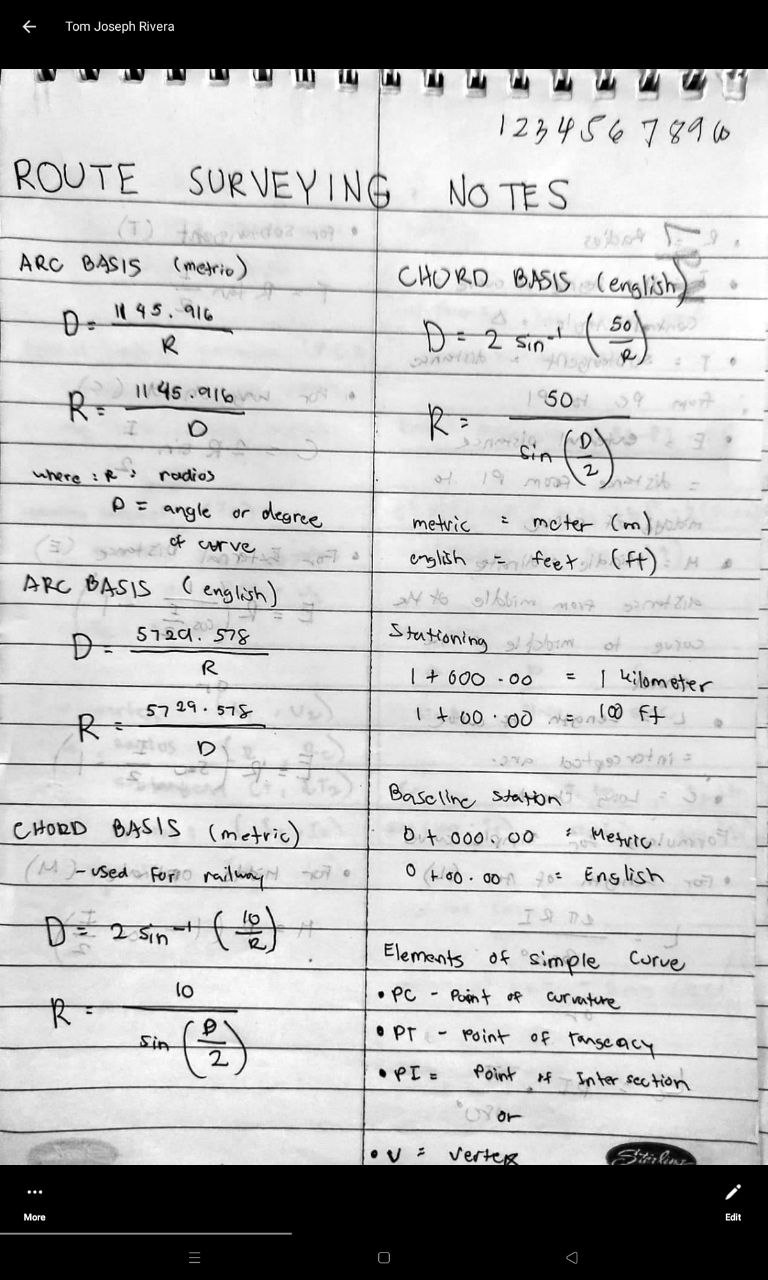 Tom Joseph Rivera
1234567890
ROUTE SURVEYING NOTES
ARC BASIS (metric)
D = 1145.916 / R
R = 1145.916 / D
where : R = radios
D = angle or degree
of curve
ARC BASIS (english)
D = 5729.578 / R
R = 5729.578 / D
CHORD BASIS (metric)
- used for railway
D = 2 sin⁻¹ (10/R)
R = 10 / sin (D/2)
CHORD BASIS (english)
D = 2 sin⁻¹ (50/R)
R = 50 / sin (D/2)
metric = meter (m)
english = feet (ft)
Stationing
1 + 000.00 = 1 kilometer
1 + 00.00 = 100 ft
Baseline station
0 + 000.00 = Metric
0 + 00.00 = English
Elements of simple Curve
• PC - Point of curvature
• PT - Point of
• PI = Point of Intersection
or
• V = Vertex
Sterling
More
Edit